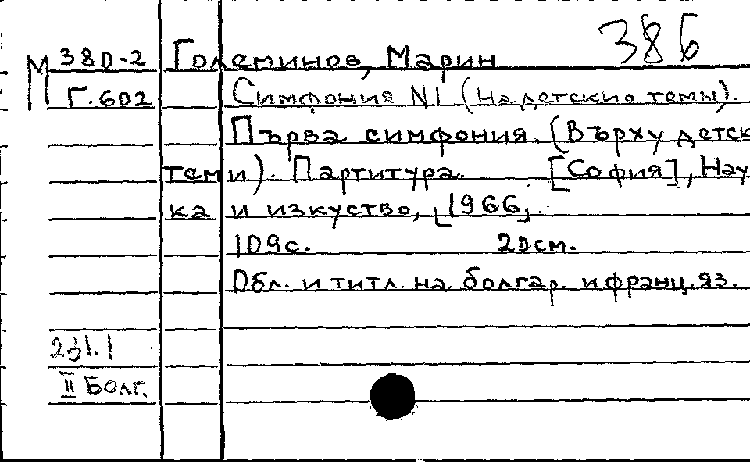 386
М 380-2 Големинов, Марин
Г.602 Симфония N1 (На детские темы).
Първа симфония. (Върху детск
теми). Партитура. [София], Нау
ка и изкуство, [1966].
109с. 20см.
Обл. и титл. на болгар. и франц. яз.
231.1
II Болг.